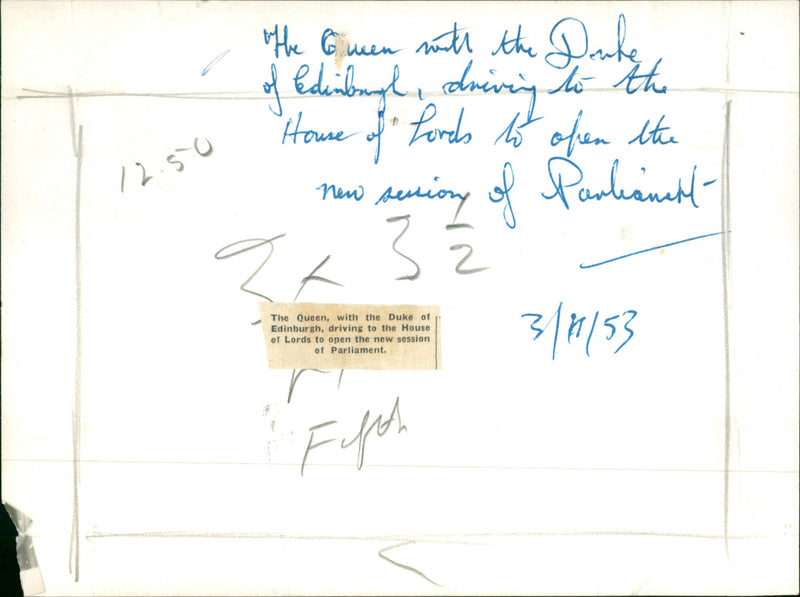 The Queen with the Duke
of Edinburgh, driving to the
House of Lords to open the
new session of Parliament
12.50
3 1/2
The Queen, with the Duke of
Edinburgh, driving to the House
of Lords to open the new session
of Parliament.
3/11/53
Fifth